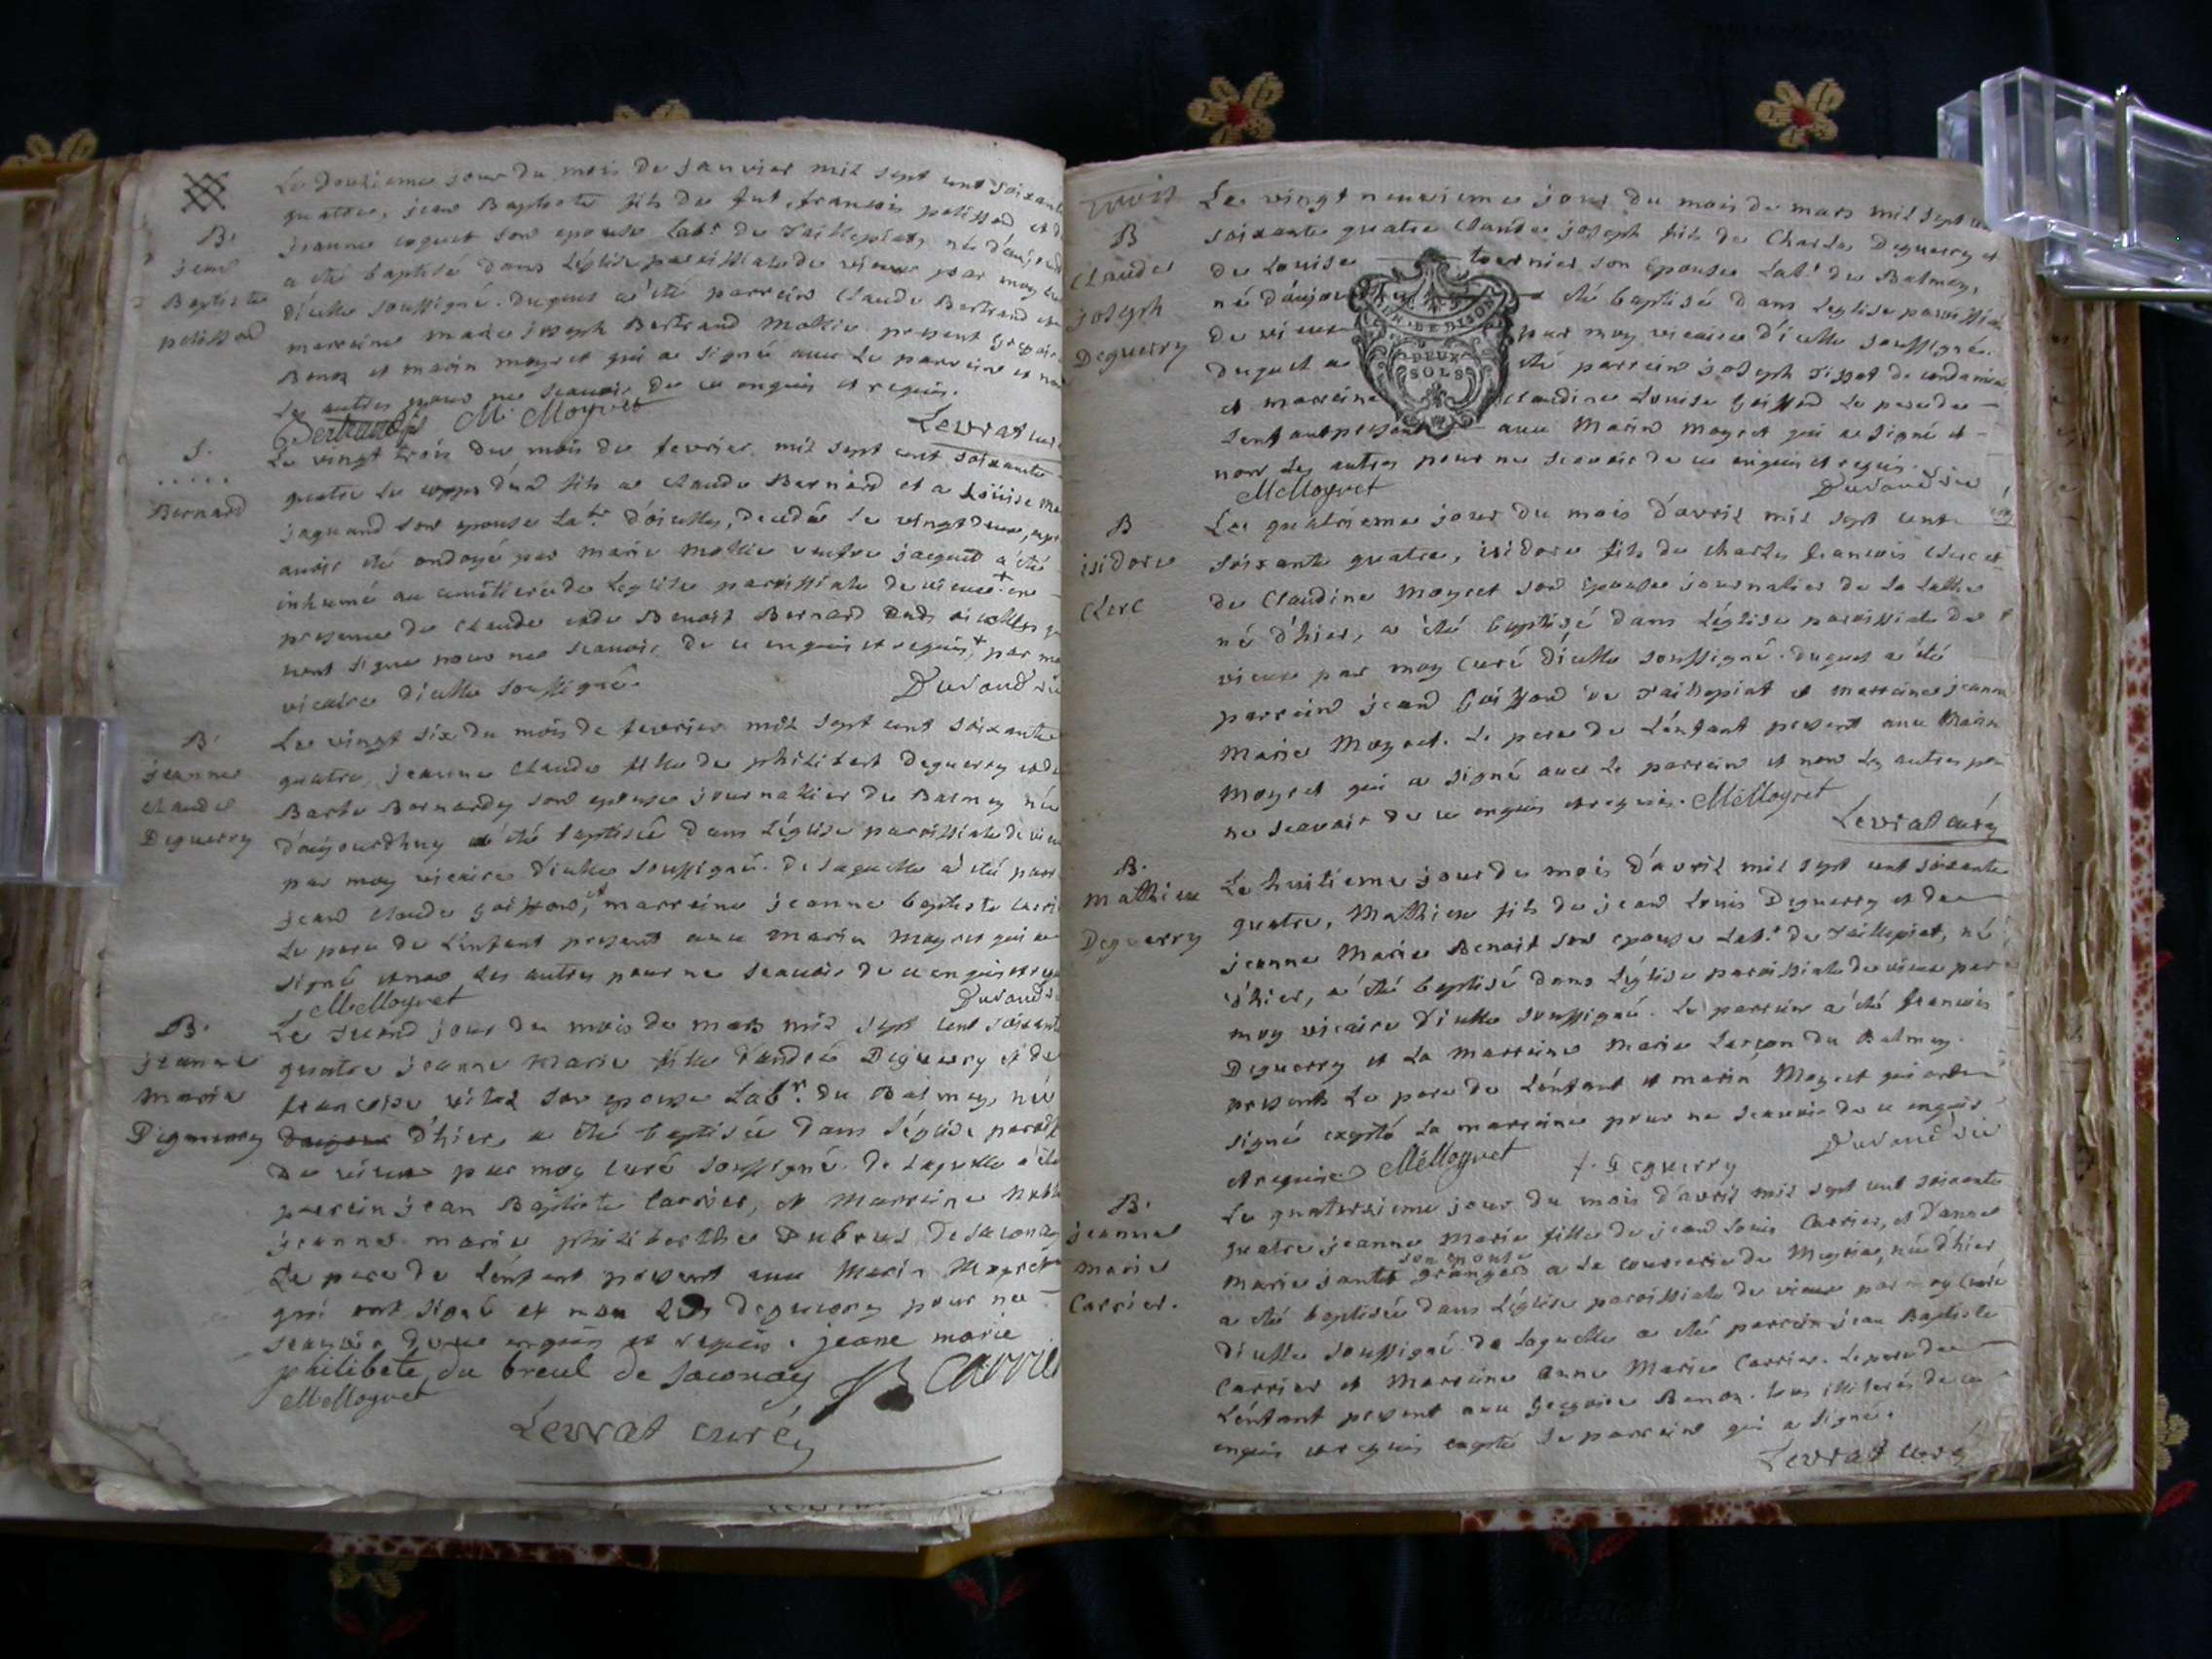 Le douzieme jour du mois de janvier mil sept cent soixante
quatre, jean Baptiste fils de fut françois pelisson et de
jeanne coquet son epouse Labr. de Taillepiat, né d'aujourd
a été baptisé dans L'église paroissiale de vieux par moy curé
d'icelle soussigné. duquel a été parrein Claude Bertrand et
marreine marie joseph Bertrand Mollie present gregoire
Benoz et marin moyret qui a signé avec Le parrein et non
Les autres pour ne scavoir de ce enquis et requis.
Bertrand M. Moyret
Levrat curé
B.
jean
Baptiste
pelisson
Le vingt trois du mois de fevrier mil sept cent soixante
quatre Le corps d'un fils a claude Bernard et a Louise
jaquand son epouse La.br d'oisselly, decedé Le vingt deux, apr
avoir été ondoyé par marie mollie veufve jacquet a été
inhumé au cemétiere de Leglise paroissiale de vieux + en
presence de claude et de Benoist Bernard
nont signé pour ne scavoir de ce enquis et requis, + par moy
vicaire d'icelle soussigné.
S.
.....
Bernard
Le vingt six du mois de fevrier mil sept cent soixante
quatre, jeanne claude fille de philibert Deguerry et de
Barbe Bernardy son epouse journalier du Balmey née
d'aujourdhuy a été baptisée dans L'église paroissiale de vieux
par moy vicaire d'icelle soussigné. de laquelle a été parr
jean claude goiffon, et marreine jeanne baptiste carri
Le pere de L'enfant present avec marin moyret qui a
signé et non Les autres pour ne scavoir de ce enquis et req
M. Moyret
B.
jeanne
claude
Deguerry
Le second jour du mois de mars mil sept cent soixante
quatre jeanne Marie fille d'andré Deguerry et de
francoise vital son epouse Labr. du Balmey, née
d'hier, a été baptisée dans L'église paroiss
de vieux par moy curé soussigné. de Laquelle a été
parrein jean Baptiste Carrier, et Marreine
jeanne marie philiberthe Dubreul De saconay
Le pere de L'enfant present avec Marin Moyret
qui ont signé et non Les deguerry pour ne
scavoir de ce enquis et requis. jeane marie
philibete du breul de saconay JB Carrie
M. Moyret
Levrat curé
B.
jeanne
Marie
Deguerry
Le vingt neuvieme jour du mois de mars mil sept cen
soixante quatre Claude joseph fils de Charle Deguerry et
de Louise tournier son Epouse Labr. du Balmey,
né d'aujour été baptisé dans Leglise paroissiale
de vieux par moy vicaire d'icelle soussigné.
duquel a été parrein joseph Tissot de
et marreine claudine Louise Goiffon Le pere de
Lenfant present avec Marin moyret qui a signé et
non Les autres pour ne scavoir de ce enquis et requis.
M. Moyret
DE DIJON
DEUX
SOLS
B
Claude
joseph
Deguerry
Le quatrieme jour du mois d'avril mil sept cent
soixante quatre, isidore fils de charles francois Clerc et
de Claudine Moyret son Epouse journalier de La
né d'hier, a été baptisé dans L'église paroissiale de
vieux par moy curé d'icelle soussigné. duquel a été
parrein jean Goiffon de Taillepiat et marreine jeanne
Marie Moyret. Le pere de L'enfant present avec Marin
Moyret qui a signé avec Le parrein et non Les autres pour
ne scavoir de ce enquis et requis. M. Moyret
Levrat curé
B
isidore
Clerc
Le huitieme jour du mois d'avril mil sept cent soixante
quatre, Mathieu fils de jean Louis Deguerry et de
jeanne Marie Benoit son epouse Labr. de Taillepiat, né
d'hier, a été baptisé dans L'église paroissiale de vieux par
moy vicaire d'icelle soussigné. Le parrein a été francois
Deguerry et La Marreine Marie du Balmey.
presents Le pere de L'enfant et marin Moyret qui ont
signé excepté La marreine pour ne scavoir de ce enquis
et requise M. Moyret f. Deguerry
B.
Mathieu
Deguerry
Le quatorzieme jour du mois d'avril mil sept cent soixante
quatre jeanne Marie fille de jean Louis Carrier, et d'anne
Marie jantet son epouse grangers a La de née d'hier
a été baptisée dans L'église paroissiale de vieux par moy curé
d'icelle soussigné. de laquelle a été parrein jean Baptiste
Carrier et Marreine anne Marie Carrier. Le pere de
L'enfant present avec gregoire Benoz. tous illiterés de ce
enquis et requis excepté Le parrein qui a signé.
Levrat curé
B.
jeanne
Marie
Carrier.